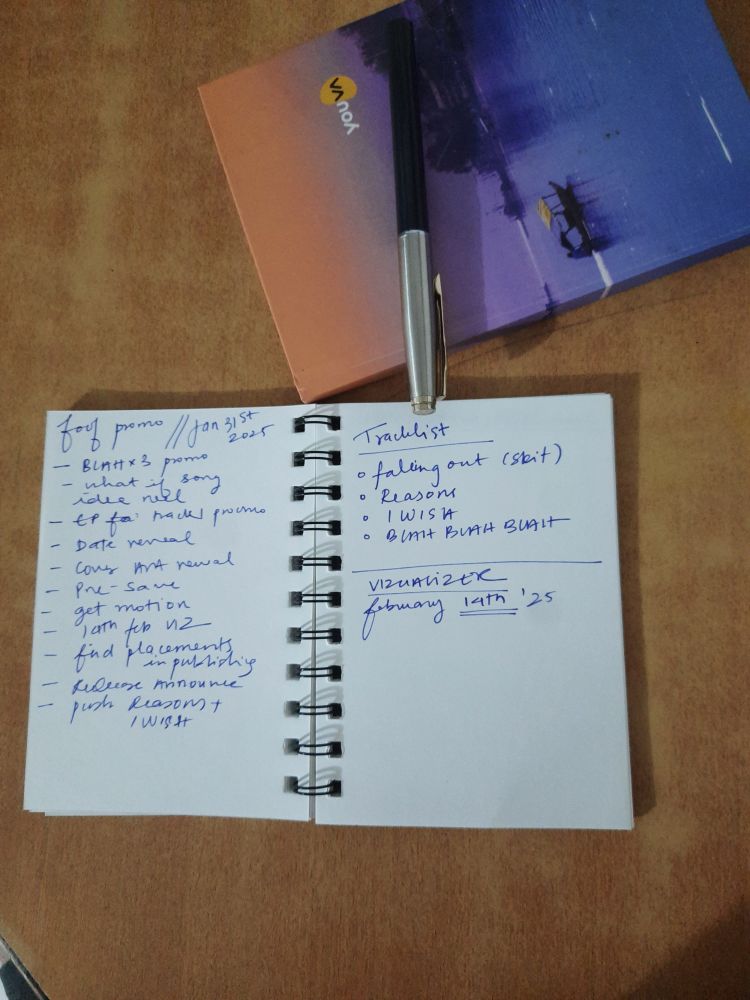 you
VA
foif promo // Jan 31st
2025
- BLAH x 3 promo
- what if song
idea reel
- EP tracks promo
- Date reveal
- Cover Art reveal
- Pre-save
- get motion
- 14th feb VZ
- find placements
in publishing
- Release Announce
- push Reasons +
I WISH
Tracklist
o falling out (skit)
o Reasons
o I WISH
o BLAH BLAH BLAH
VIZUALIZER
february 14th '25